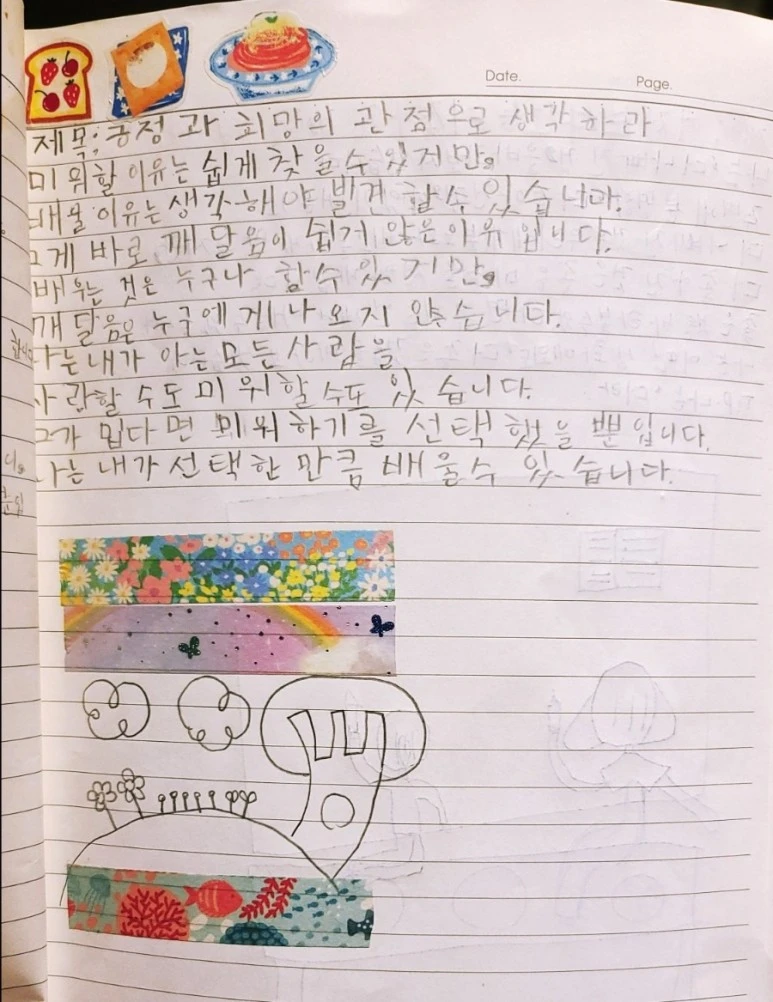 Date.
Page.
제목: 긍정과 희망의 관점으로 생각하라
미워할 이유는 쉽게 찾을 수 있지만,
배울 이유는 생각해야 발견 할 수 있습니다.
그게 바로, 깨달음이 쉽지 않은 이유입니다.
배우는 것은 누구나 할 수 있지만,
깨달음은 누구에게나 오지 않습니다.
나는 내가 아는 모든 사람을
사랑할 수도 미워할 수도 있습니다.
그가 밉다면 미워하기를 선택했을 뿐입니다.
나는 내가 선택한 만큼 배울 수 있습니다.